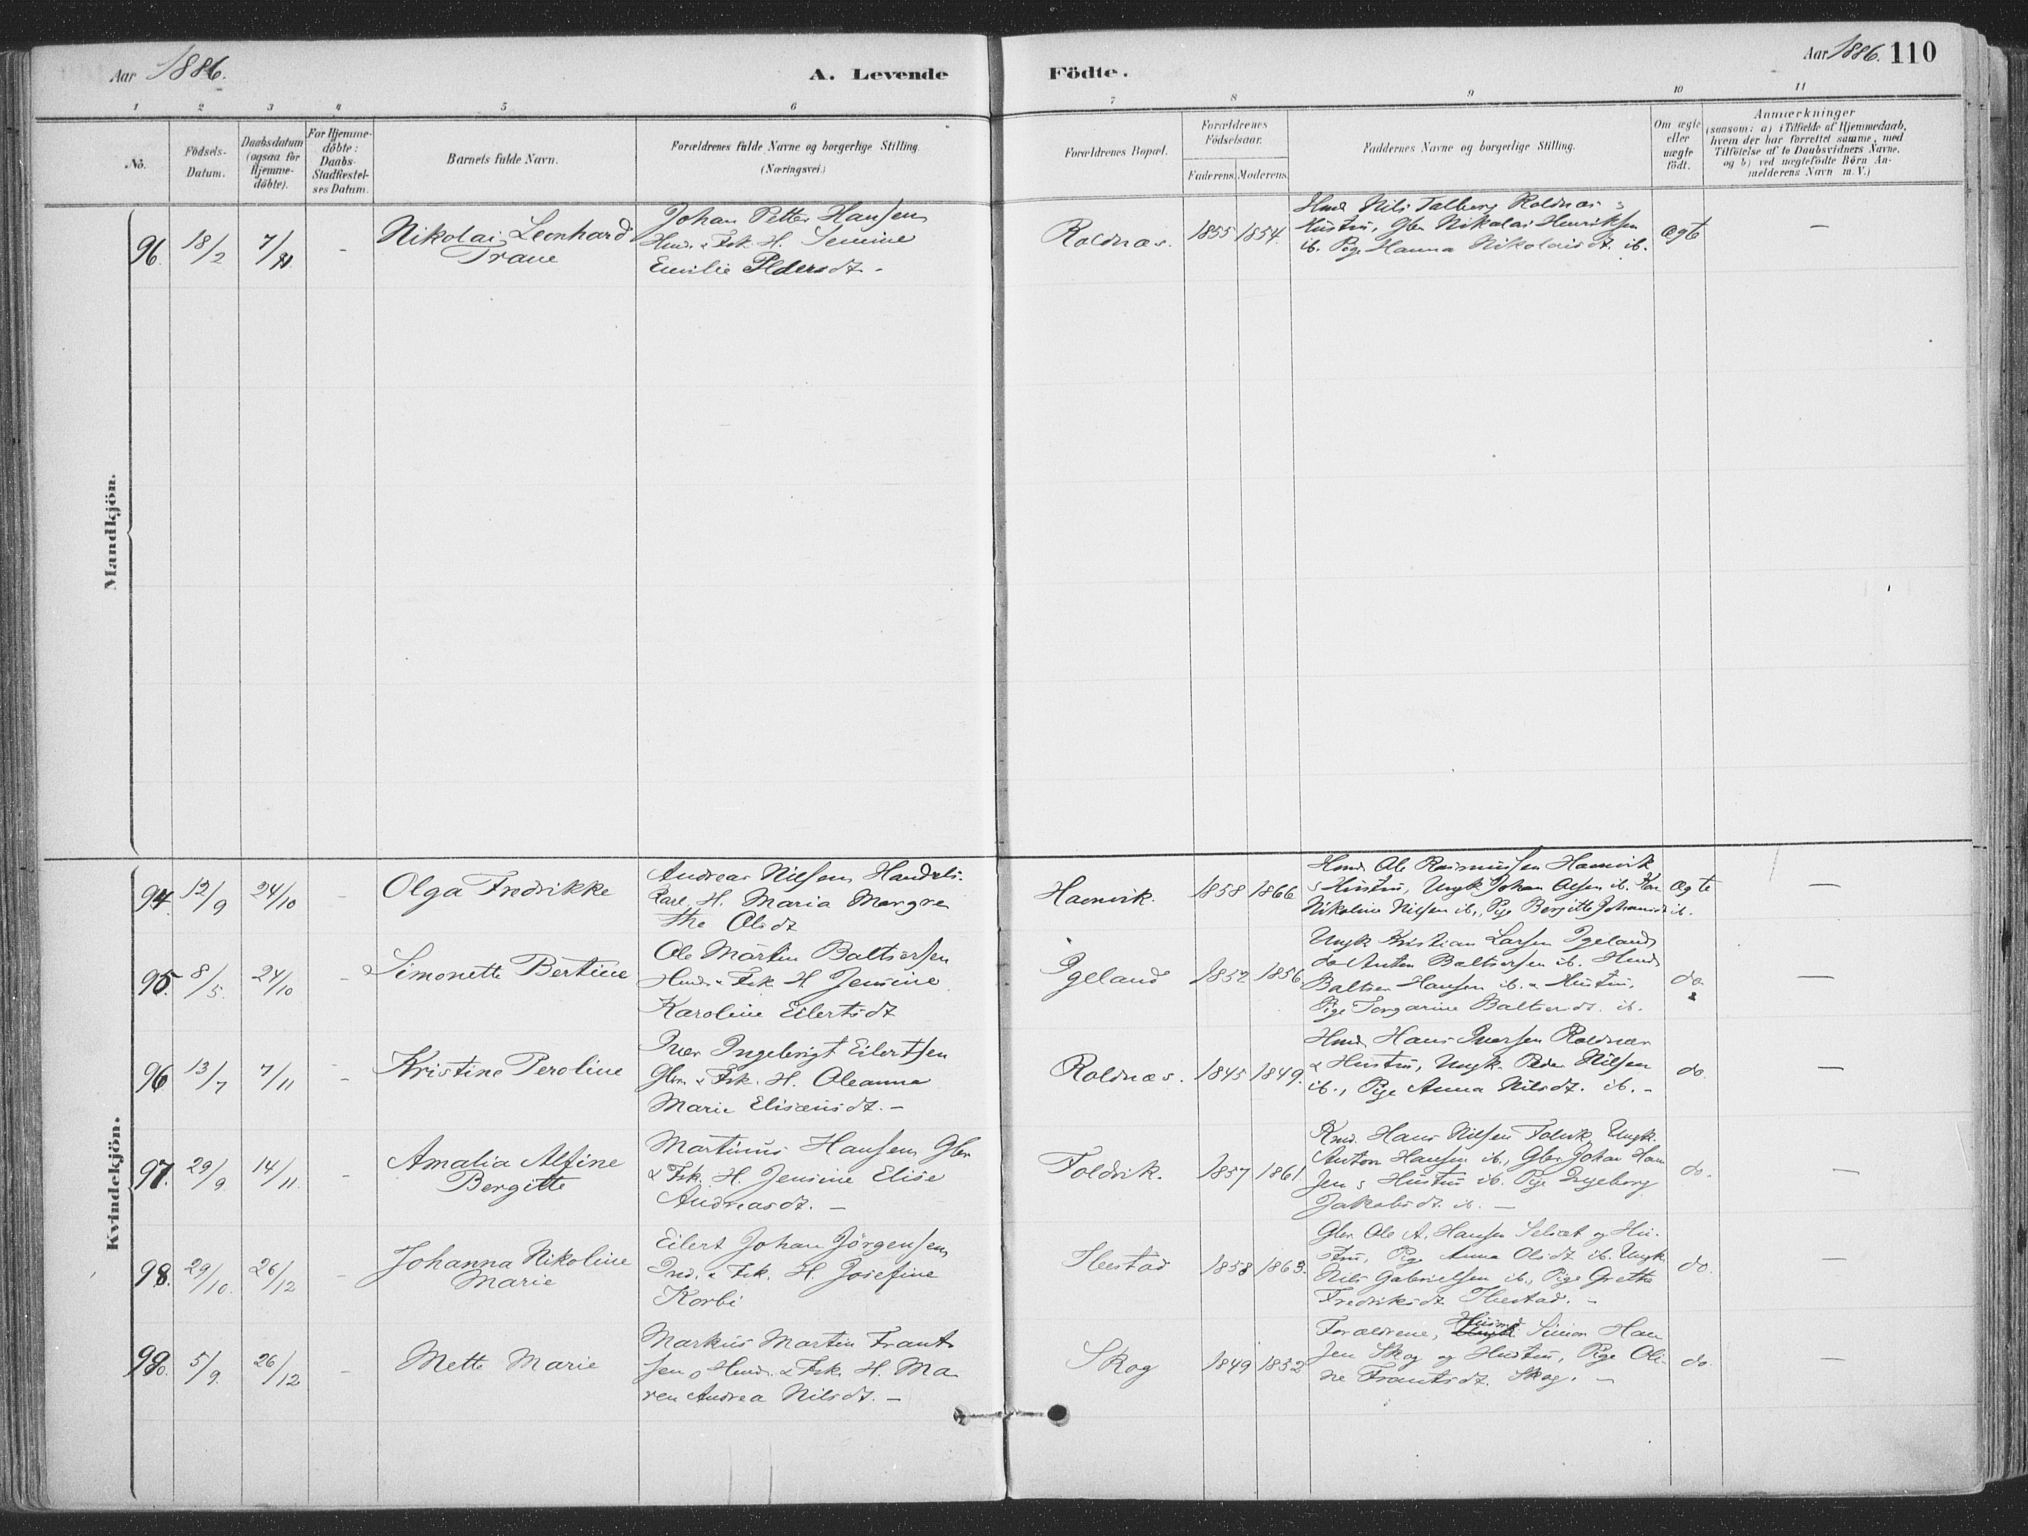 Aar 1886.
A. Levende
Födte.
Aar 1886. 110
1 2 3 4 5 6 7 8 9 10 11
Nô.
Födsels-
Datum.
Daabsdatum
(ogsaa for
Hjemme-
döbte).
For Hjemme-
döbte:
Daabs-
Stadfæstel-
ses Datum.
Barnets fulde Navn.
Forældrenes fulde Navne og borgerlige Stilling.
(Næringsvei.)
Forældrenes Bopæl.
Forældrenes
Födselsaar.
Faderens. Moderens.
Faddernes Navne og borgerlige Stilling.
Om ægte
eller
uægte
födt.
Anmærkninger
(saasom: a) i Tilfælde af Hjemmedaab,
hvem der har forrettet samme, med
Tilföielse af to Daabsvidners Navne,
og b) ved uægtefödte Börn An-
melderens Navn m. V.)
Mandkjön.
96. 18/2 7/11 -
Nikolai Leonhard
Trane
Johan Petter Hansen
Hmd. & Fsk. H. Jensine
Emilie Pedersdt. -
Roldnæs. 1855 1854.
Hmd Nils Talberg Roldnæs &
Hustru, Gbr Nikolai Henriksen
ib. Pige Hanna Nikolaisdt. ib.
ægte
—
Kvindekjön.
94. 12/9 24/10 -
Olga Fredrikke
Andreas Nilsen Handels-
karl, H. Maria Margre
the Olsdt
Hamvik. 1858 1866
Hmd Ole Rasmussen Hamvik
& Hustru, Ungk Johan Olsen ib.
Nikoline Nilsen ib., Pige Bergitte Johansdt ib.
ægte
—
95. 8/5. 24/10 -
Simonette Bertine
Ole Martin Baltsersen
Hmd. & Fsk. H. Jensine
Karoline Eilertsdt
Ygeland 1852 1856
Ungk Kristian Larsen Ygeland
do Anton Baltsersen ib. Hmd
Baltser Hansen ib. & Hustru,
Pige Torgarine Baltsersdt. ib.
do.
—
96 13/7 7/11 -
Kristine Peroline
Iver Ingebrigt Eilertsen
Gbr. & Fsk. H. Oleanna
Marie Elisæusdt. -
Roldnæs. 1845 1849.
Hmd Hans Iversen Roldnæs
& Hustru, Ungk. Peder Nilsen
ib., Pige Anna Nilsdt. ib. -
do.
—
97. 29/9 14/11. -
Amalia Alfine
Bergitte
Martinus Hansen Gbr
& Fsk. H. Jensine Elise
Andreasdt. -
Foldvik. 1857 1861
Kmd. Hans Nilsen Foldvik, Ungk.
Anton Hansen ib., Gbr Johan Han
sen & Hustru ib. Pige Ingeborg
Jakobsdt. ib. -
do.
—
98. 29/10. 26/12 -
Johanna Nikoline
Marie
Eilert Johan Jörgensen
Ind. & Fsk. H. Josefine
Korbi
Ibestad 1858 1863.
Gbr. Ole A. Hansen Selset og Hu-
stru, Pige Anna Olsdt ib. Ungk.
Nils Gabrielsen ib., Pige Grethe
Fredriksdt Ibestad. -
do.
—
99. 5/9. 26/12 -
Mette Marie
Markus Martin Frant
sen, Hmd. & Fsk. H. Ma
ren Andrea Nilsdt. -
Skog 1849 1852
Forældrene, Husmd Simon Han
sen Skog og Hustru, Pige Oli-
ne Frantsdt. Skog. -
do.
—